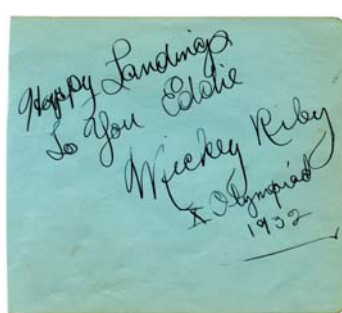 Happy Landings
To You Eddie
Mickey Riley
X Olympiad
1932